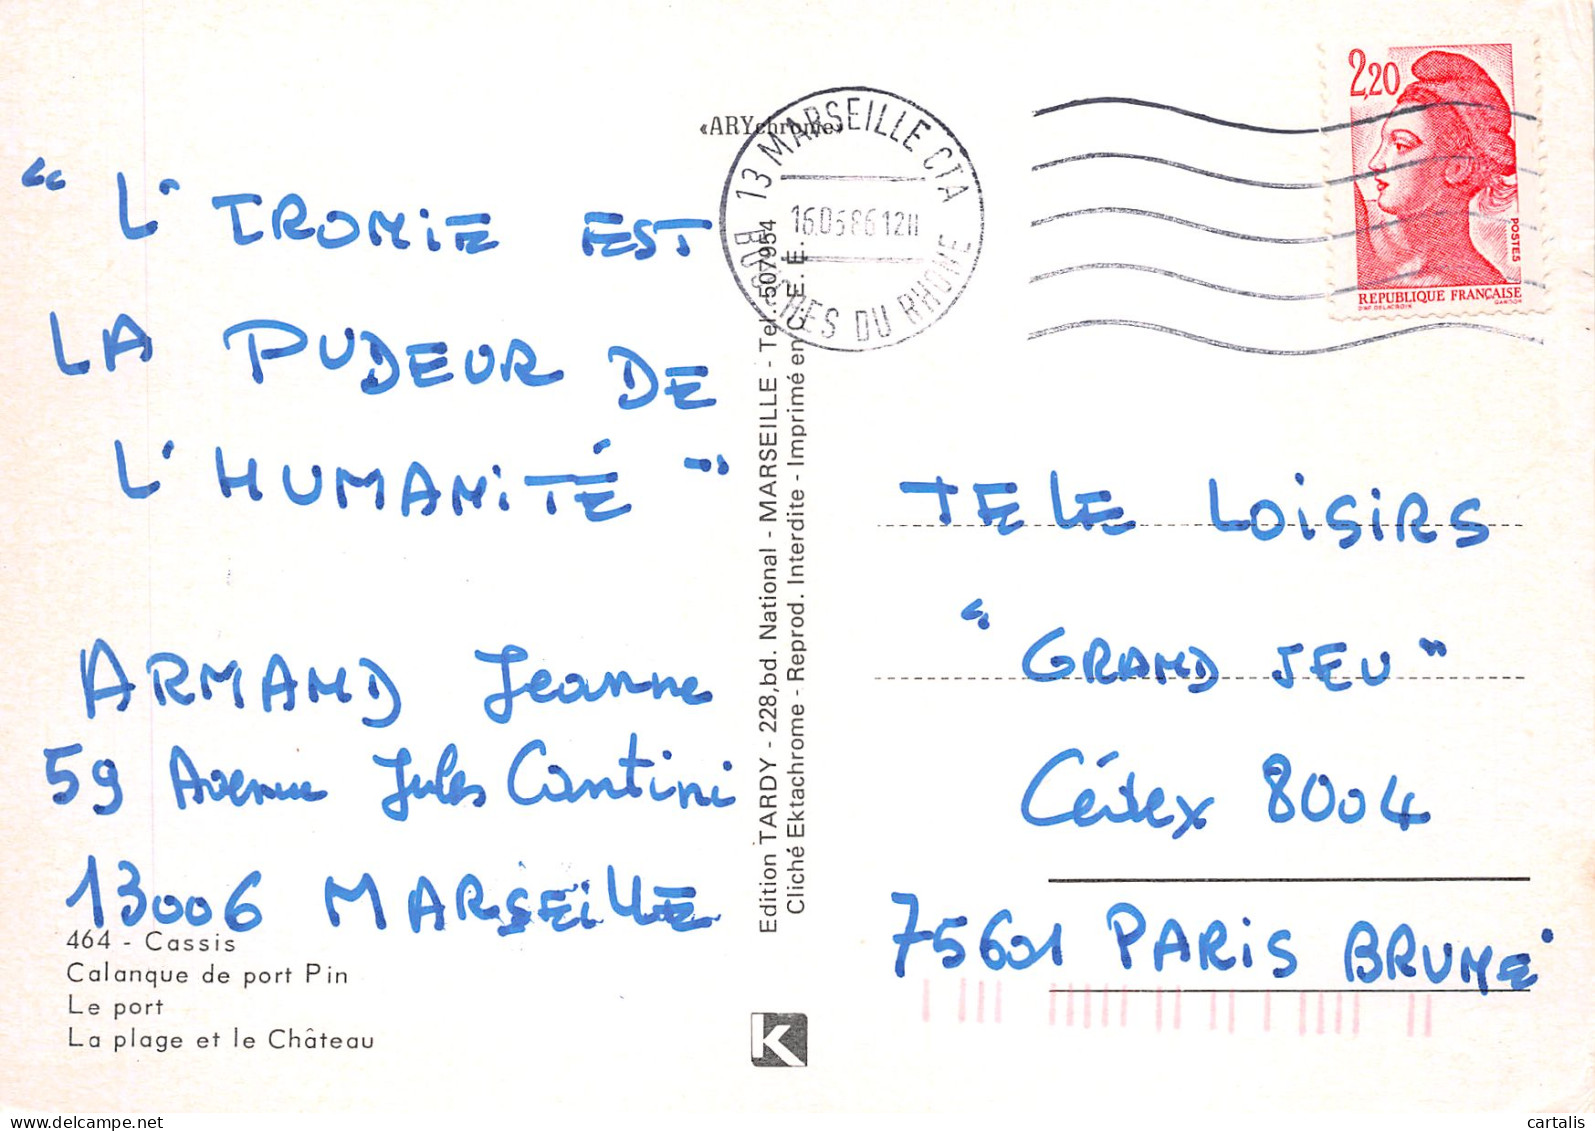 « L' IRONIE EST
LA PUDEUR DE
L'HUMANITÉ »
ARMAND Jeanne
59 Avenue Jules Cantini
13006 MARSEILLE
464 - Cassis
Calanque de port Pin
Le port
La plage et le Château
«ARYchrome»
Edition TARDY - 228,bd. National - MARSEILLE - Tel. 507954
Cliché Ektachrome - Reprod. Interdite - Imprimé en C. E. E.
K
13 MARSEILLE CTA
12H
BOUCHES DU RHONE
2,20
POSTES
REPUBLIQUE FRANÇAISE
D'AP. DELACROIX GANDON
TELE LOISIRS
"GRAND JEU"
Cédex 8004
75601 PARIS BRUNE
cartalis